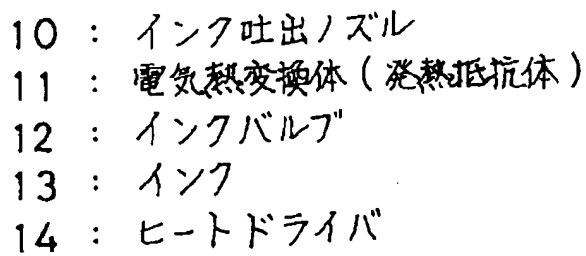 10 : インク吐出ノズル
11 : 電気熱変換体 ( 発熱抵抗体 )
12 : インクバルブ
13 : インク
14 : ヒートドライバ